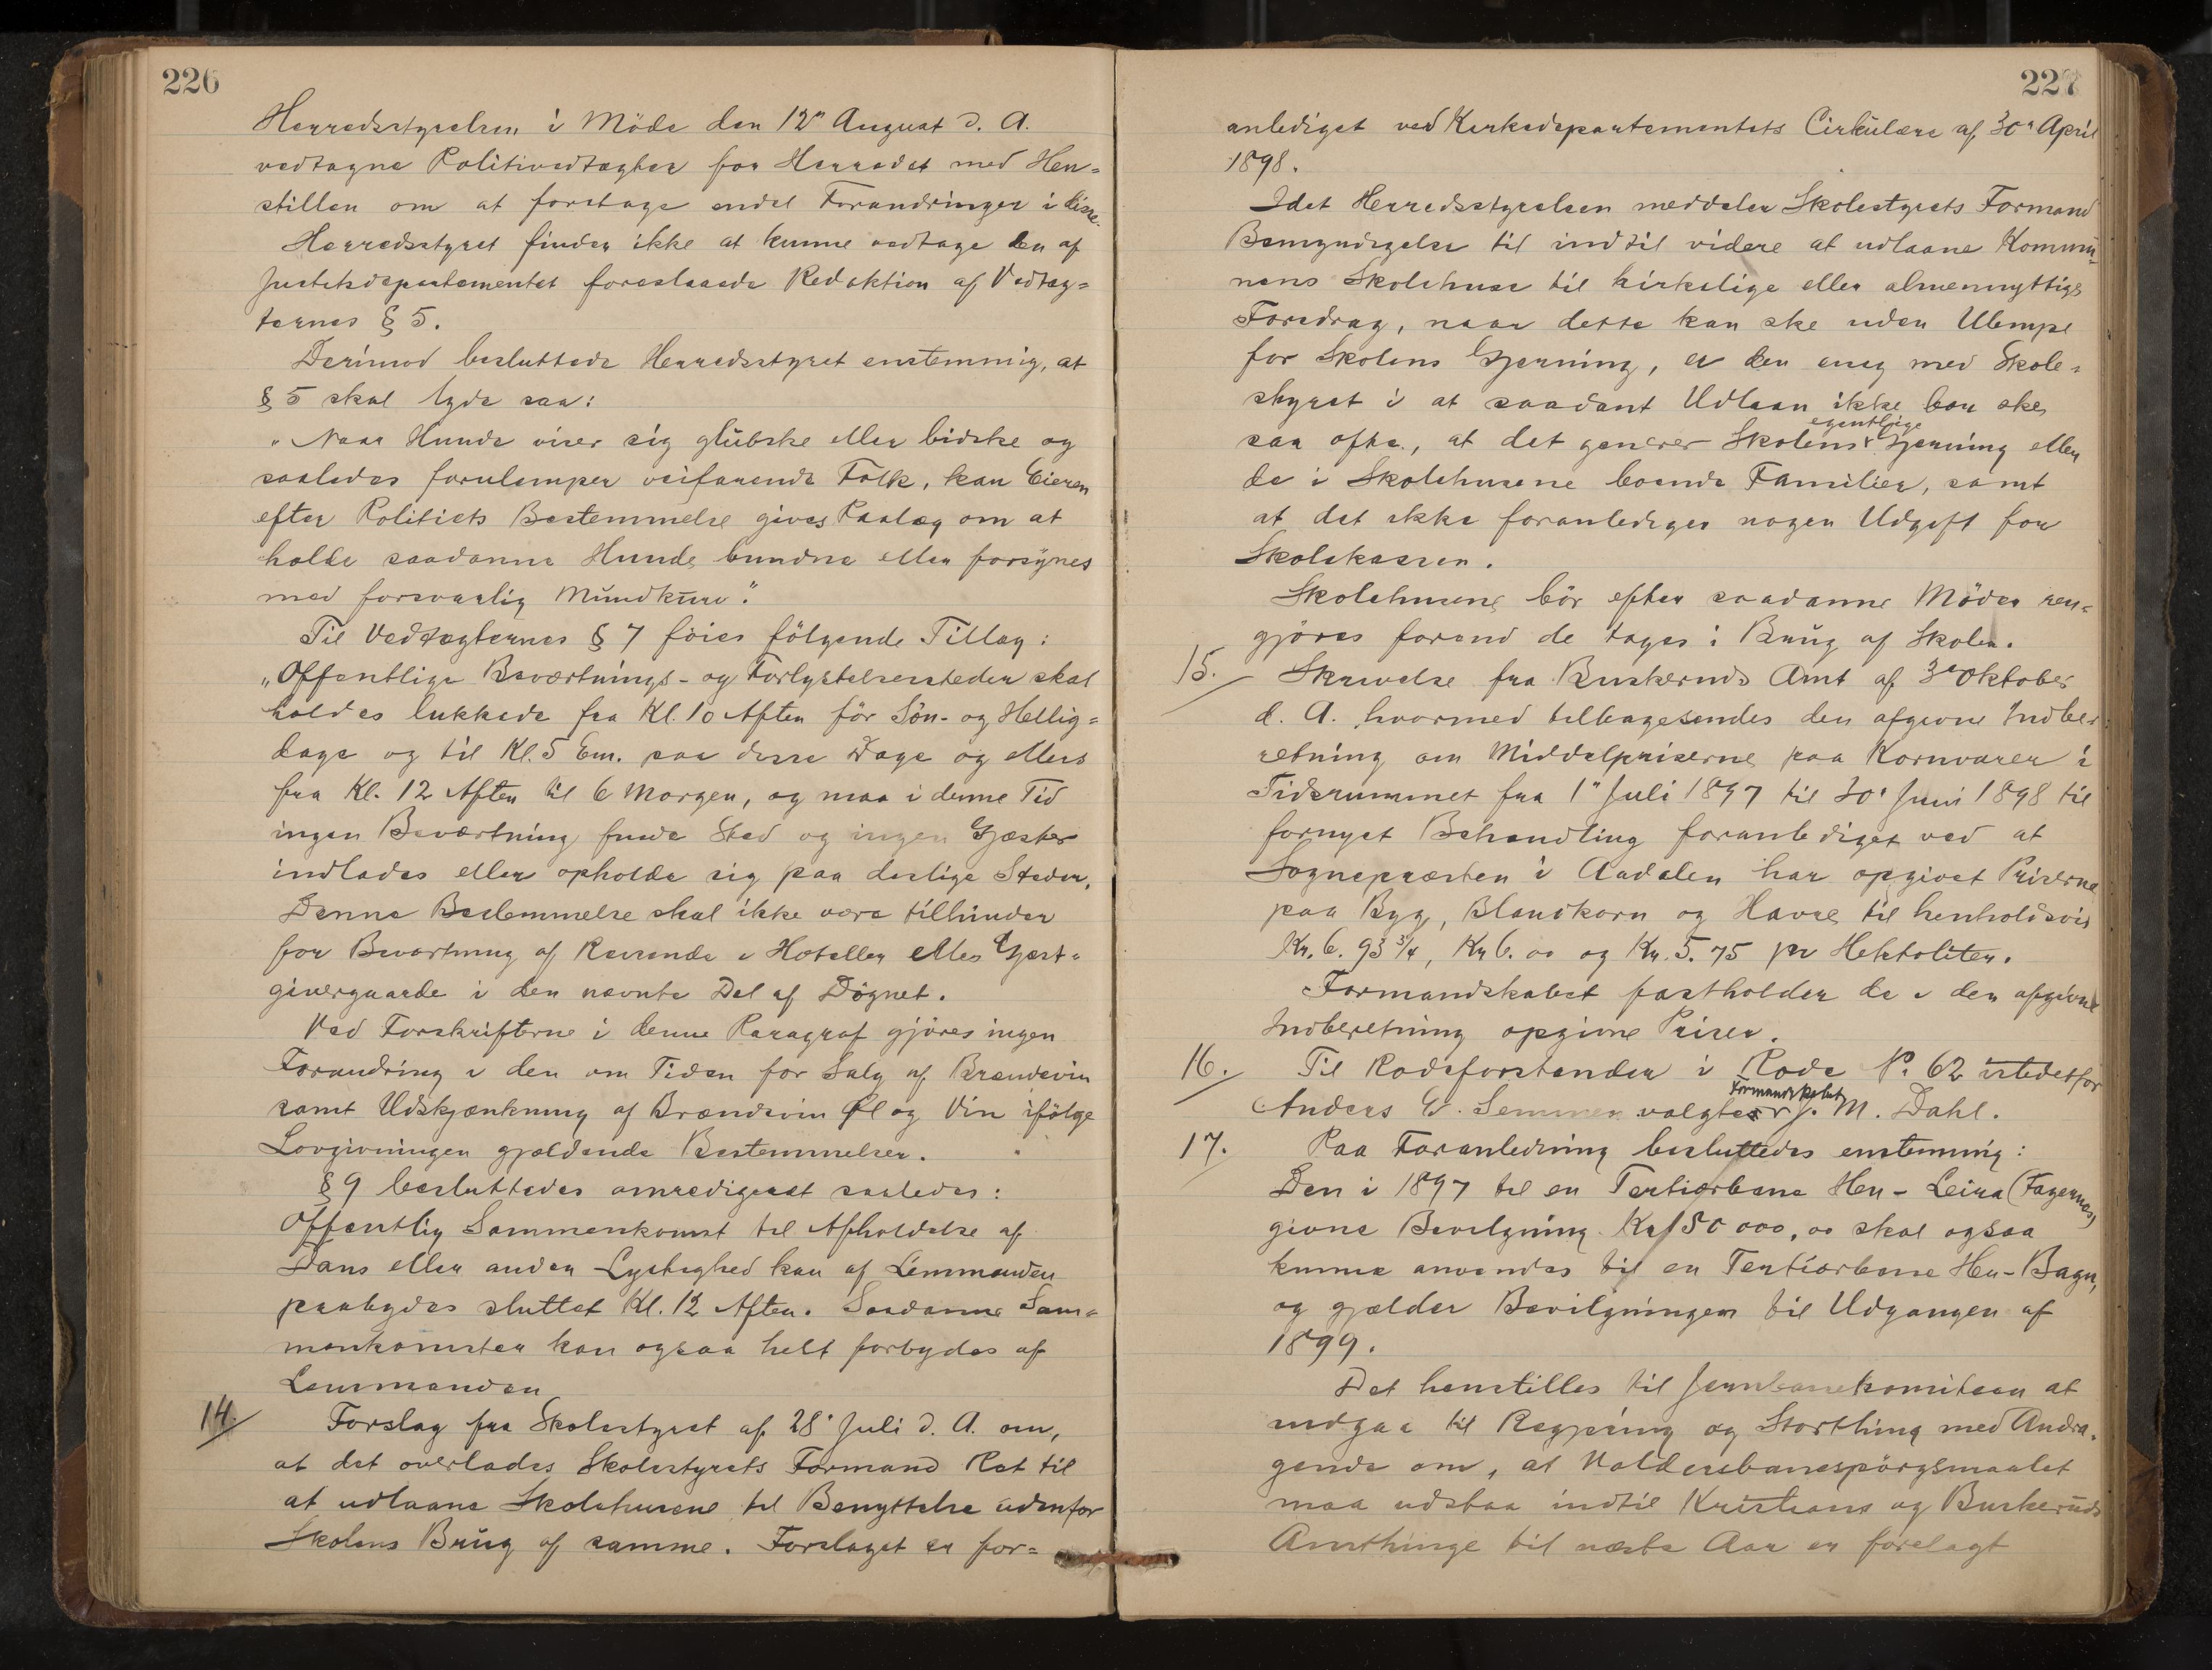 226
Herredsstyrelsen i Möde den 12te August d. A.
vedtagne Politivedtægter for Herredet med Hen-
stillen om at foretage endel Forandringer i disse.
Herredsstyret finder ikke at kunne vedtage den af
Justitsdepartementet foreslaaede Redaktion af Vedtæg-
ternes § 5.
Derimod besluttede Herredsstyret enstemmig, at
§ 5 skal lyde saa:
"Naar Hunde viser sig glubske eller bidske og
saaledes forulemper veifarende Folk, kan Eieren
efter Politiets Bestemmelse gives Paalæg om at
holde saadanne Hunde bundne eller forsynes
med forsvarlig Mundkurv."
Til Vedtægternes § 7 föies fölgende Tillæg:
"Offentlige Beværtnings- og Forlystelsessteder skal
holdes lukkede fra Kl. 10 Aften för Sön- og Hellig-
dage og til Kl. 5 Em. paa disse Dage og ellers
fra Kl. 12 Aften til 6 Morgen, og maa i denne Tid
ingen Beværtning finde Sted og ingen Gjæster
indlades eller opholde sig paa deslige Steder.
Denne Bestemmelse skal ikke være tilhinder
for Bevertning af Reisende i Hoteller eller Gjæst-
givergaarde i den nævnte Del af Dögnet.
Ved Forskrifterne i denne Paragraf gjöres ingen
Forandring i den om Tiden for Salg af Brændevin
samt Udskjænkning af Brændevin Øl og Vin ifölge
Lovgivningen gjældende Bestemmelser.
§ 9 besluttedes omredigeret saaledes:
Offentlig Sammenkomst til Afholdelse af
Dans eller anden Lystighed kan af Lensmanden
paabydes sluttet Kl. 12 Aften. Saadanne Sam-
menkomster kan ogsaa helt forbydes af
Lensmanden
14. Forslag fra Skolestyret af 28' Juli d. A. om,
at det overlades Skolestyrets Formand Ret til
at udlaane Skolehusene til Benyttelse udenfor
Skolens Brug af samme. Forslaget er for-
227
anlediget ved Kirkedepartementets Cirkulære af 30te April
1898.
Idet Herredsstyrelsen meddeler Skolestyrets Formand
Bemyndigelse til indtil videre at udlaane Kommu-
nens Skolehuse til kirkelige eller almennyttige
Foredrag, naar dette kan ske uden Ulempe
for Skolens Gjerning, er den enig med Skole-
styret i at saadant Udlaan ikke bør ske
egentlige
saa ofte, at det generer Skolens Gjerning eller
de i Skolehusene boende Familier, samt
at det ikke foranlediger nogen Udgift for
Skolekassen.
Skolehusene bör efter saadanne Möder ren-
gjöres forend de tages i Brug af Skolen.
15. Skrivelse fra Buskeruds Amt af 3die Oktober
d. A. hvormed tilbagesendes den afgivne Indbe-
retning om Middelpriserne paa Kornvarer i
Tidsrummet fra 1te Juli 1897 til 30' Juni 1898 til
fornyet Behandling foranlediget ved at
Sognepræsten i Aadalen har opgivet Priserne
paa Byg, Blandkorn og Havre til henholdsvis
Kr. 6. 93 3/4, Kr 6. 00 og Kr. 5. 75 pr Hektoliter.
Formandskabet fastholder de i den afgivne
Indberetning opgivne Priser.
16. Til Rodeforstander i Rode No. 62 istedetfor
Formandskabet
Anders G. Semmen valgtes J. M. Dahl.
17. Paa Foranledning besluttedes enstemmig:
Den i 1897 til en Tertiærbane Hen - Leira (Fagernes)
givne Bevilgning Kr 150 000,00 skal ogsaa
kunne anvendes til en Tertiærbane Hen - Bagn,
og gjælder Bevilgningen til Udgangen af
1899.
Det henstilles til Jernbanekomiteen at
indgaa til Regjering og Storthing med Andra-
gende om, at Valdersbanespörgsmaalet
maa udstaa indtil Kristians og Buskeruds
Amtthinge til næste Aar er forelagt